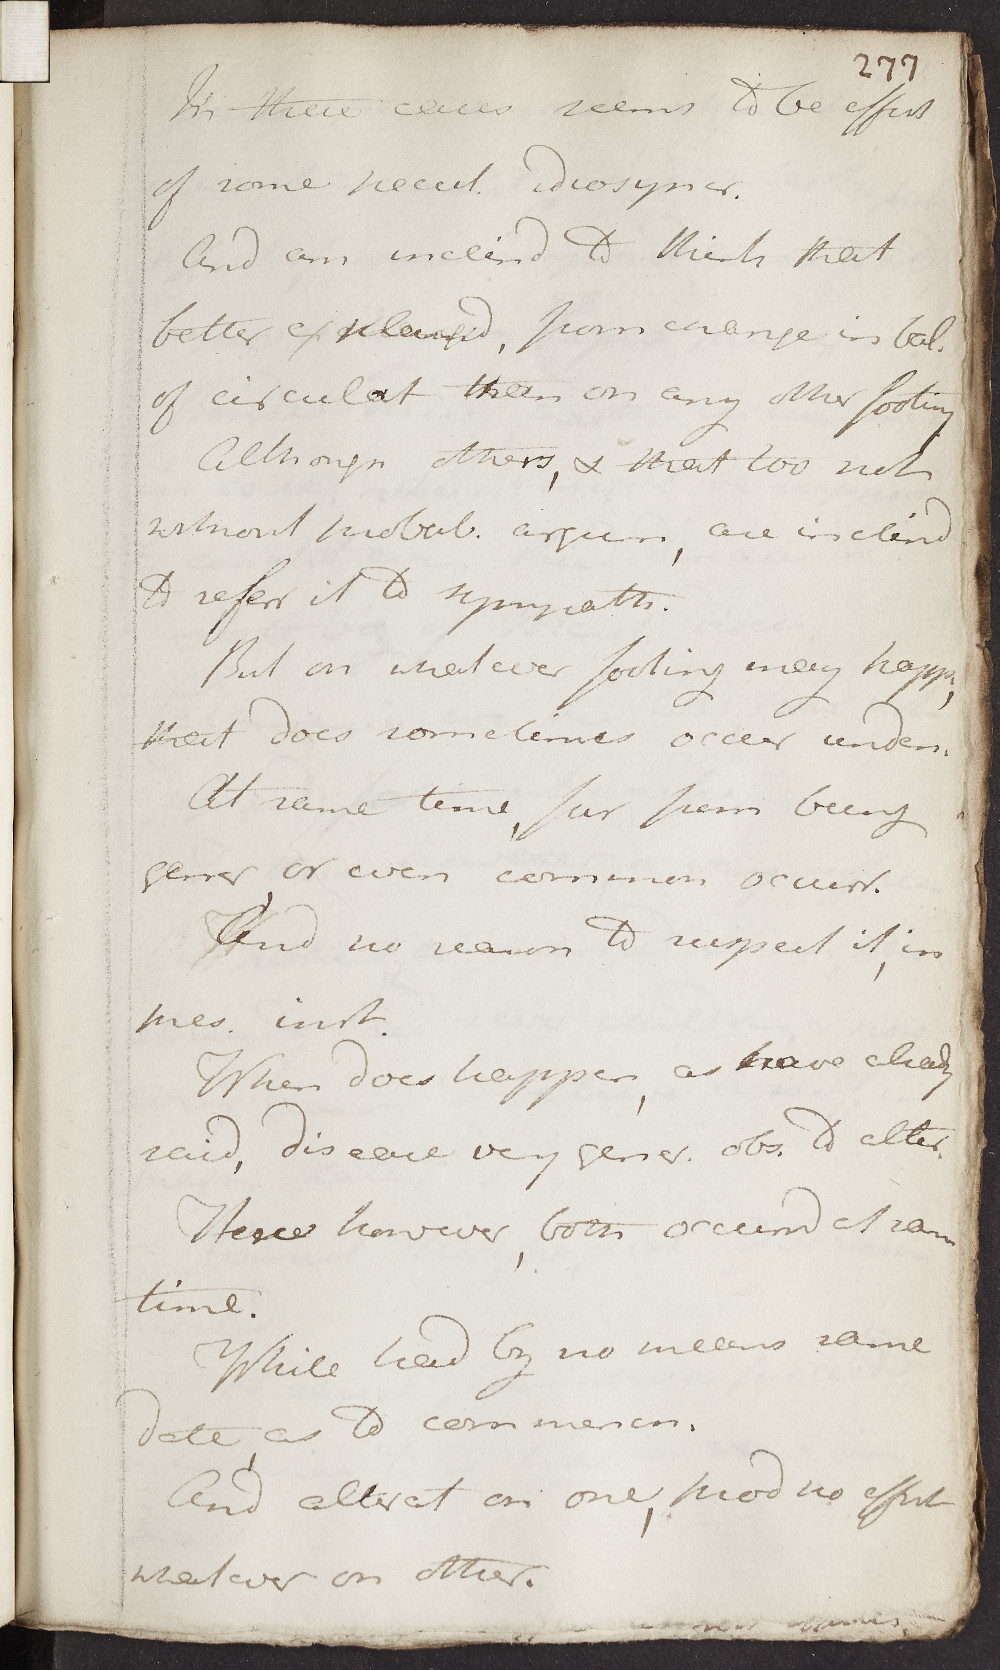 277
In these cases seems to be effect
of some pecul. idiosyncr.
And am inclind to think that
better explained, from change in bal.
of circulat than on any other footing
Although others, & that too not
without probab. argum, are inclind
to referr it to sympath.
But on whatever footing may happ,
that does sometimes occur unden.
At same time, far from being
gener, or even common occurr.
And no reason to suspect it, in
pres. inst.
When does happen, as have alrady
said, disease very gener. obs. to alter.
Here however, both occurrd at sam
time.
While had by no means same
date, as to commencn.
And alterat on one, prod no effect
whatever on other.